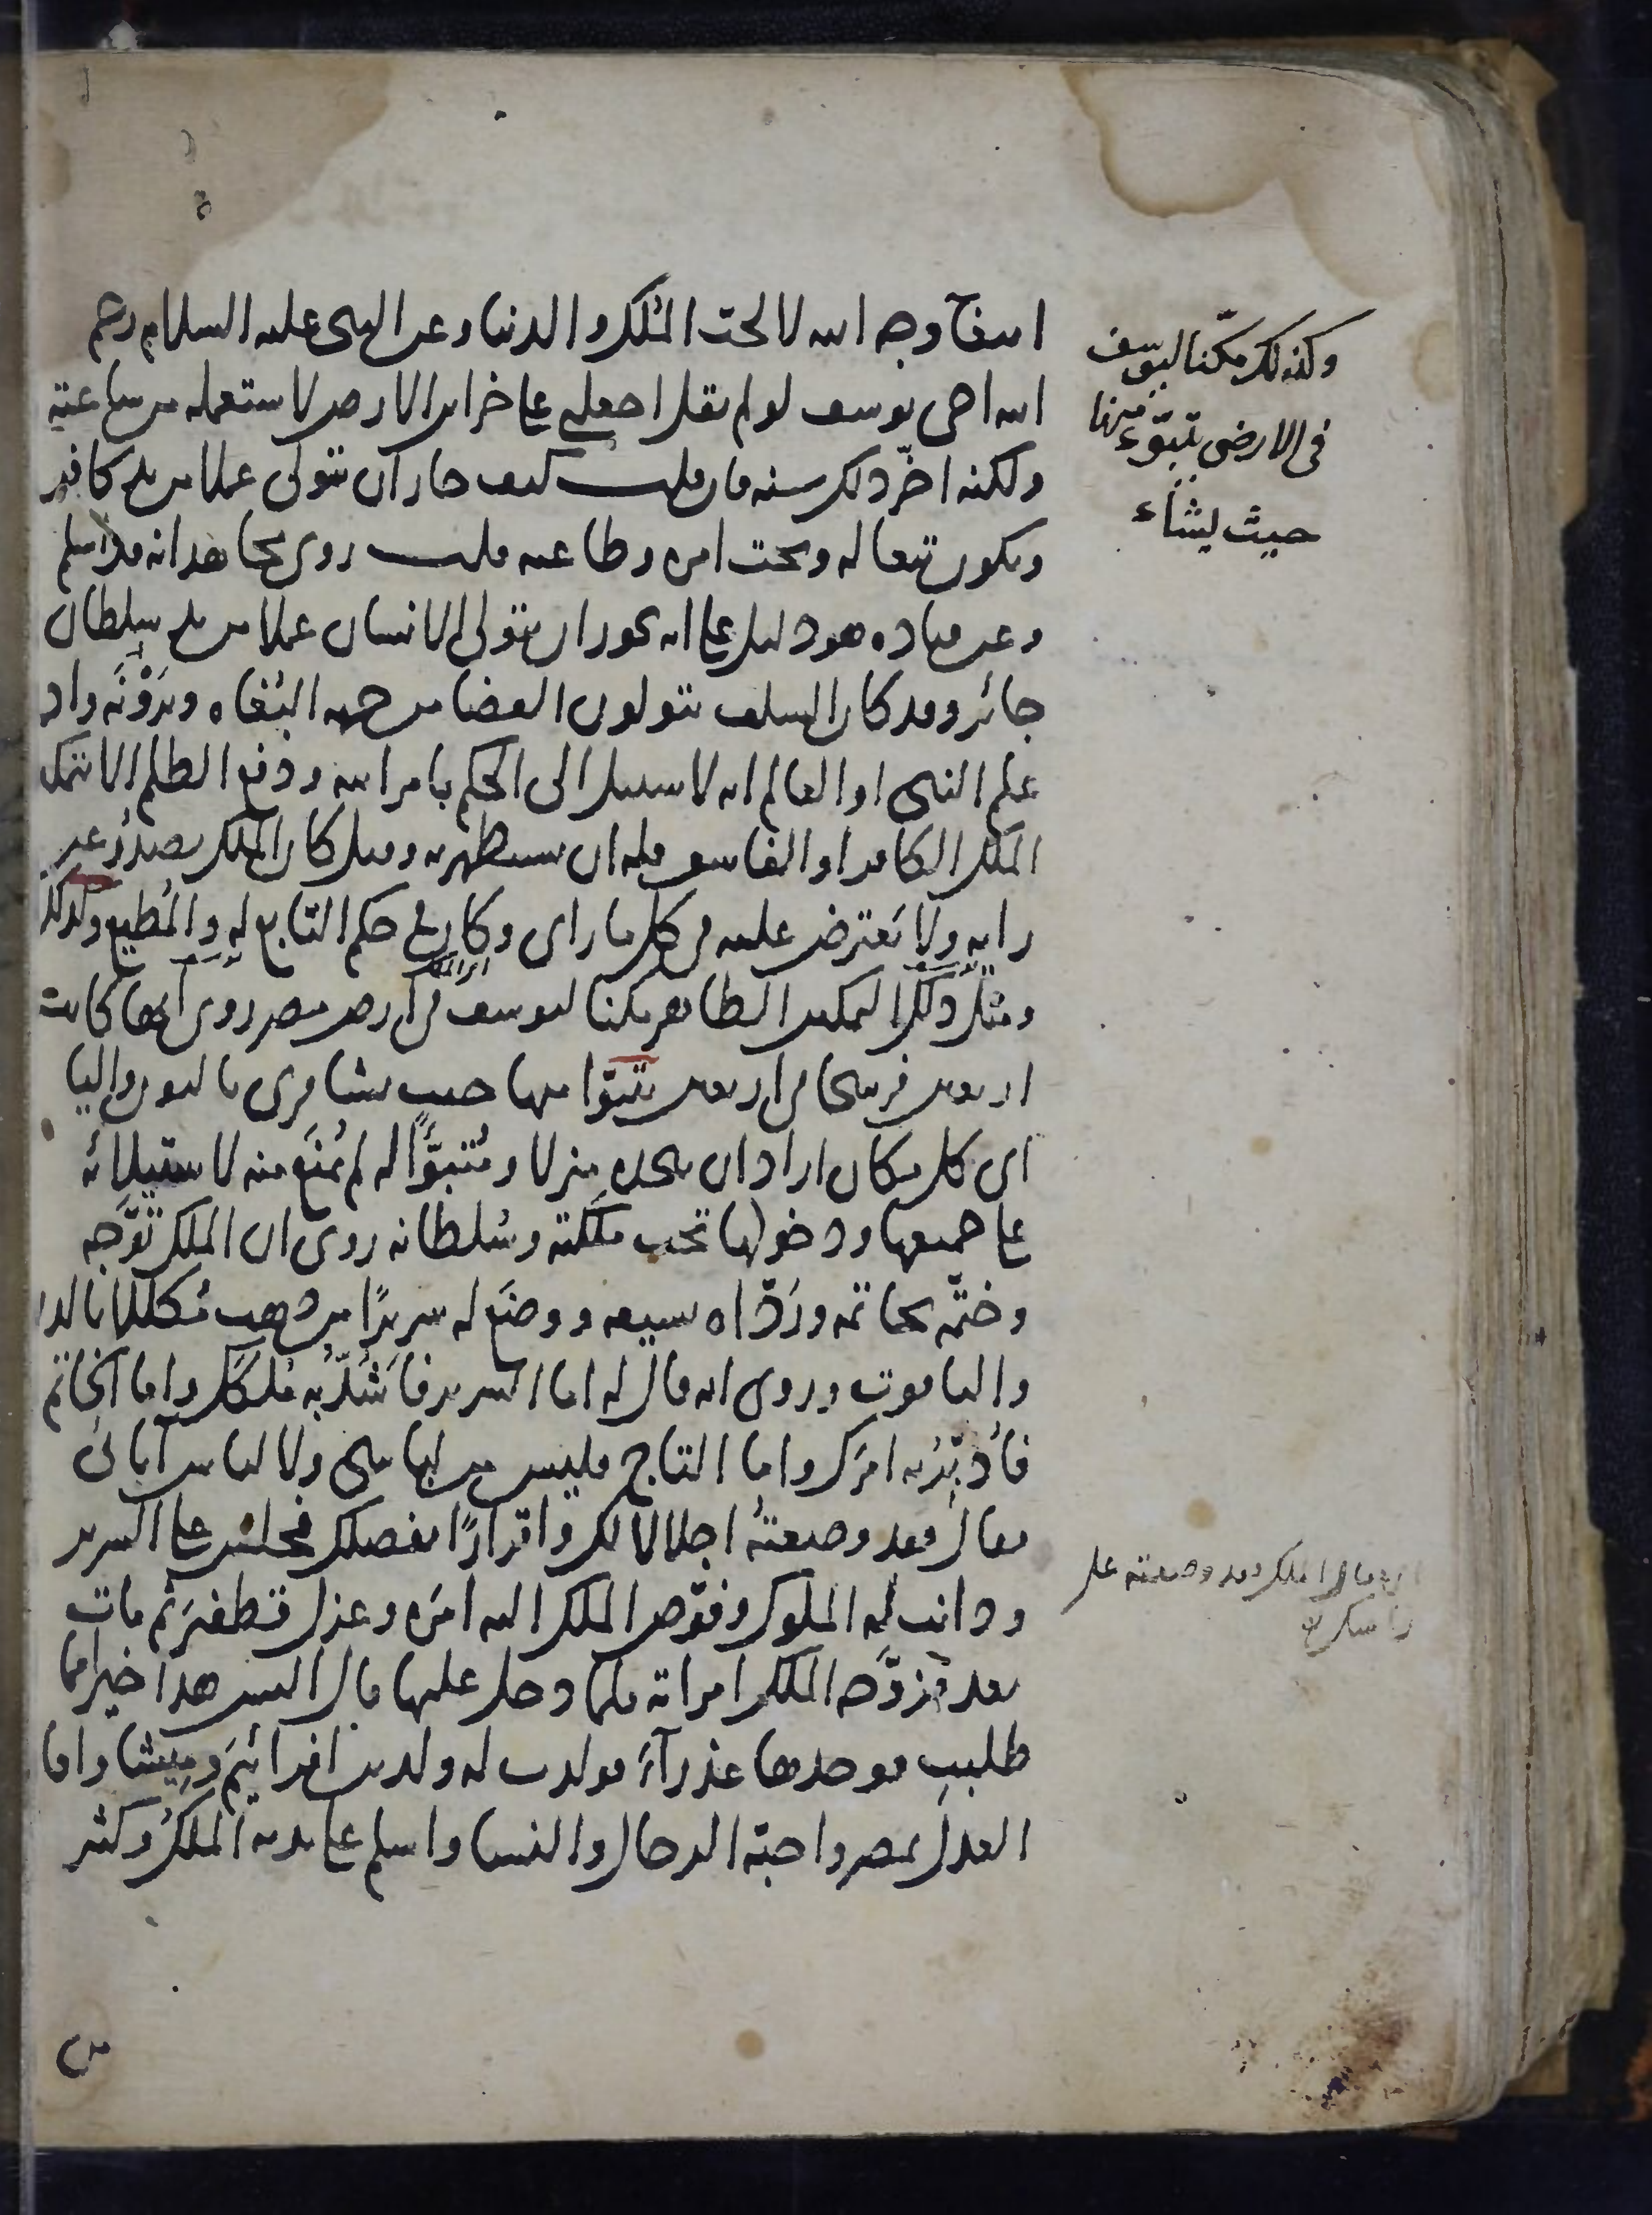 ابتغآ وجه الله لا لحب الملك والدنيا وعن النبى عليه السلام رحم
الله اخى يوسف لو لم يقل اجعلنى على خزاين الارض لاستعمله من ساعته
ولكنه اخّر ذلك سنه فان قلت كيف جاز ان يتولى عملا من يد كافر
ويكون تبعا له وتحت امره وطاعته قلت روى مجاهد انه قد اسلم
وعن قتاده هو دليل على انه يجوز ان يتولى الانسان عملا من يد سلطان
جائر وقد كان السلف يتولون القضا من جهه البُغاه ويَرَوْنَه واذا
علم النبى او العالم انه لا سبيل الى الحكم بامر الله ودفع الظلم الا بتمكين
الملك الكافر او الفاسق فله ان يستظهر به وقيل كان الملك يصدُرُ عن
رايه ولا يَعترض عليه فى كل ما راى وكان فى حكم التابع له والمُطيع وكذلك
ومثل ذلك التمكين الظاهر مكنا ليوسف فى ارض مصر روى انها كانت
اربعين فرسخا فى اربعين يتبوّا منها حيث يشا قرى بالنون واليا
اى كل مكان اراد ان يتخذه منزلا ومُتبوَّأً له لم يُمنَع منه لاستيلائه
على جميعها ودخولها تحت مَلَكته وسُلطانه روى ان الملك تَوَّجه
وختّمه بخاتمه وردّاه بسيفه ووضَع له سريرًا من ذهب مُكللا بالدر
والياقوت وروى انه قال له اما السرير فاَشُدُّ به مُلكك واما الخاتم
فأُدبّرُ به امرَك واما التاج فليس من لباسى ولا لباس آبائى
فقال فقد وضعتُه اجلالا لك واقرارًا بفضلك فجلس على السرير
ودانت له الملوك وفوّض الملك اليه امرَه وعزل قطفيرَ ثم مات
بعد فزوَّجه الملك امراته فلما دخل عليها قال اليس هذا خيرا مما
طلبتِ فوجدها عذرآءَ فولدت له ولدين افرائيمَ وميشا واقام
العدل بمصر واحبّه الرجال والنسا واسلم على يديه الملكُ وكثير
وكذلك مكّنا ليوسف
فى الارض يتبوّء منها
حيث يشاء